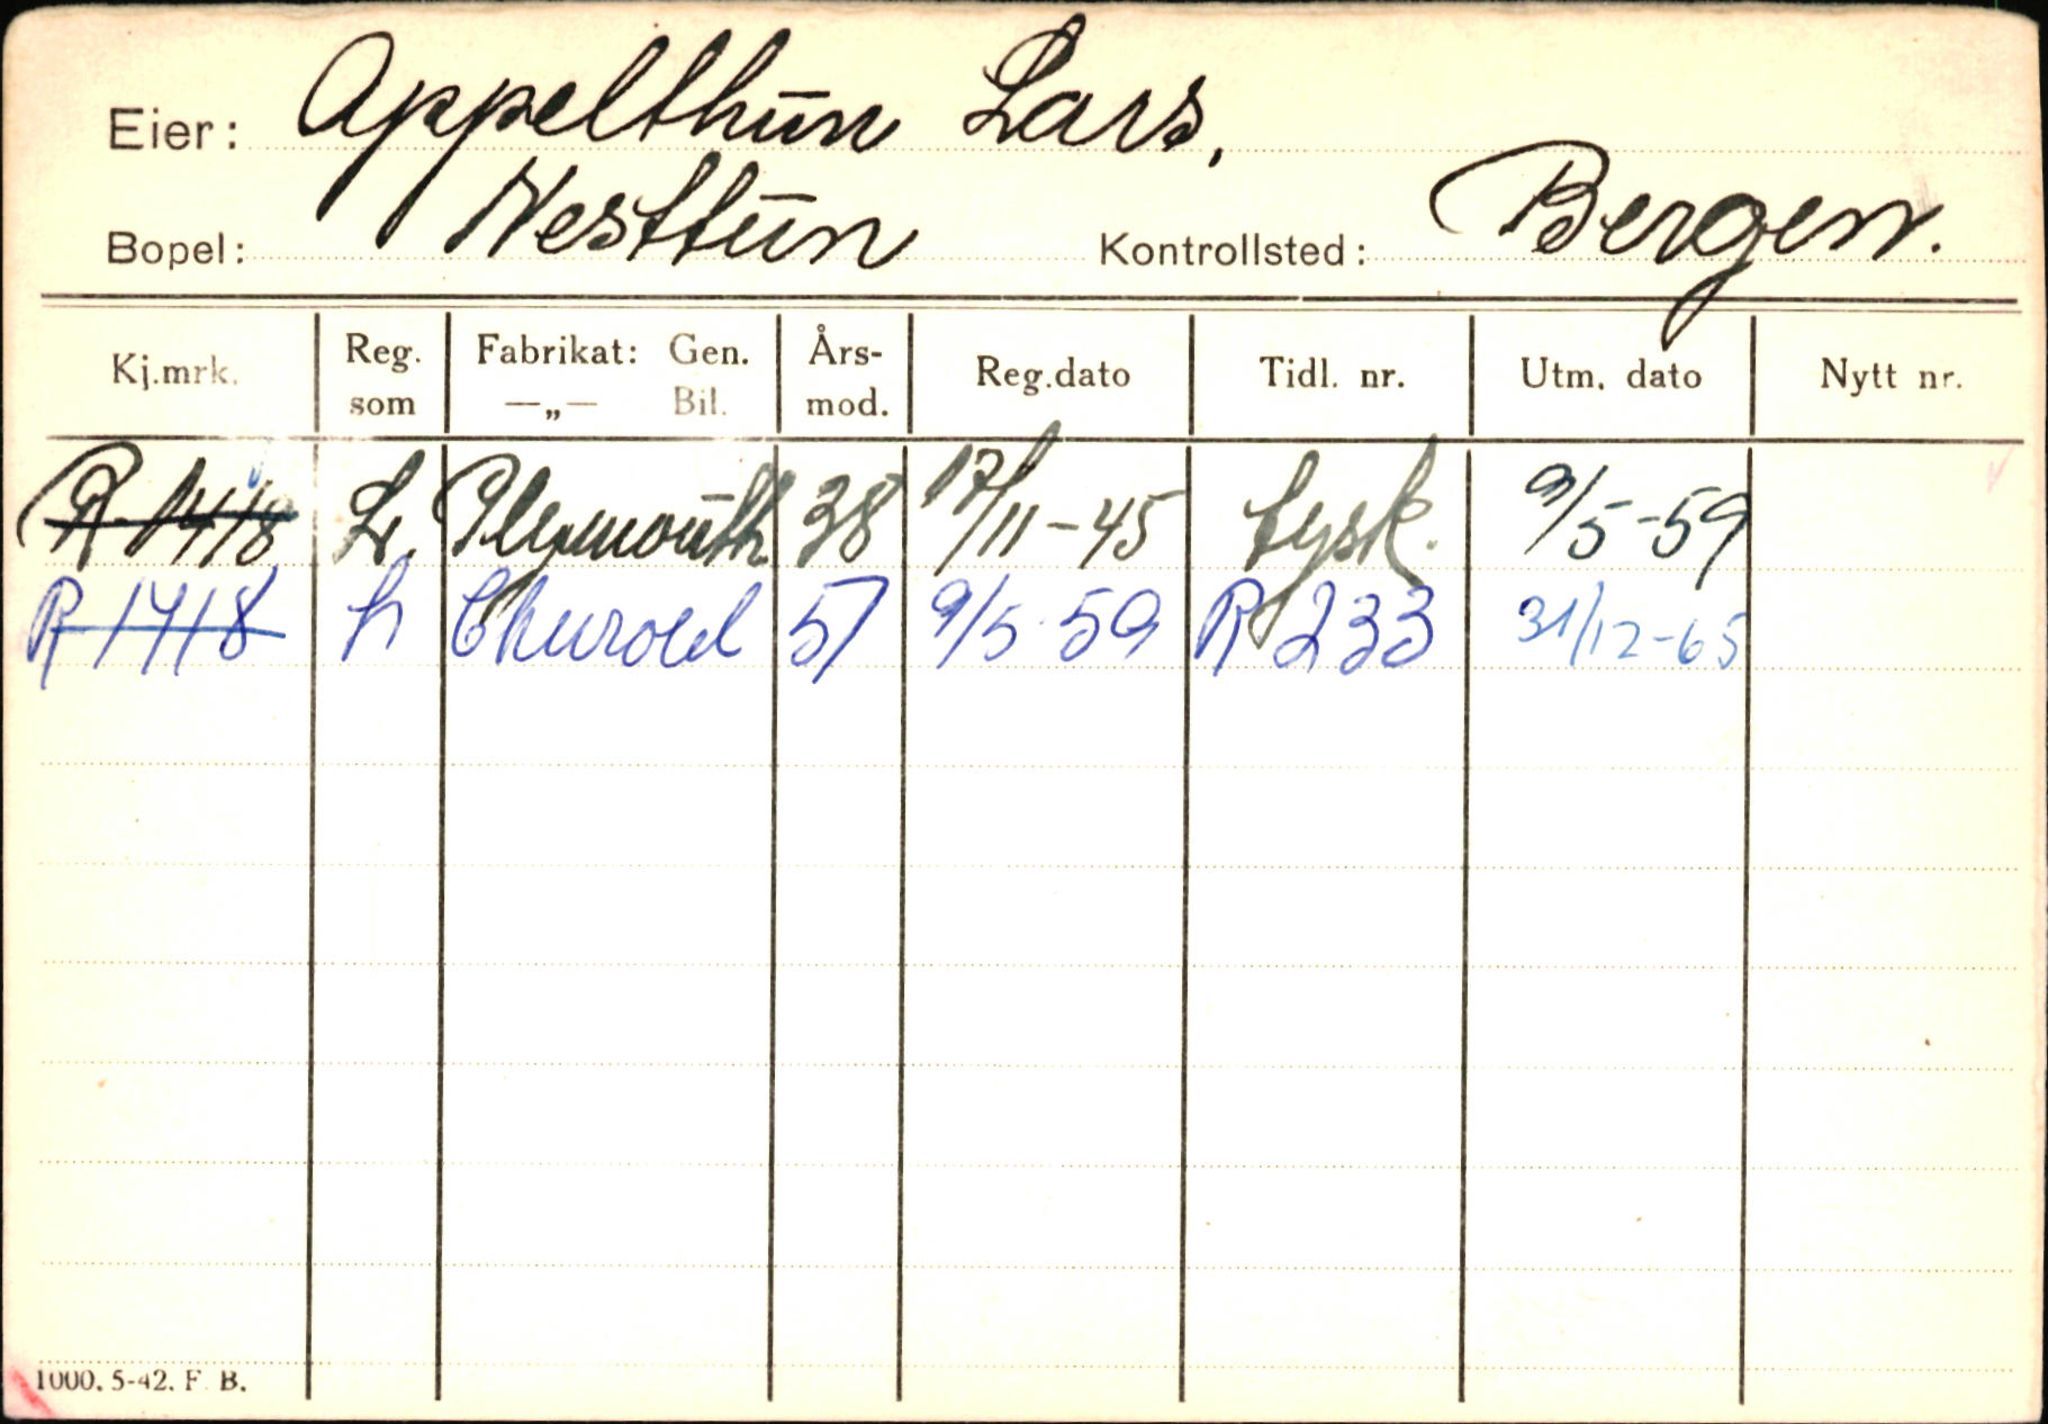 Eier: Appelthun Lars,
Bopel: Nesttun Kontrollsted: Bergen.
Kj.mrk. Reg. som Fabrikat: Gen. —„— Bil. Års-mod. Reg.dato Tidl. nr. Utm. dato Nytt nr.
R-1418 L. Plymouth 38 17/11-45 tysk. 9/5-59
R-1418 L 57 9/5-59 R 233 31/12-65
1000. 5-42. F. B.